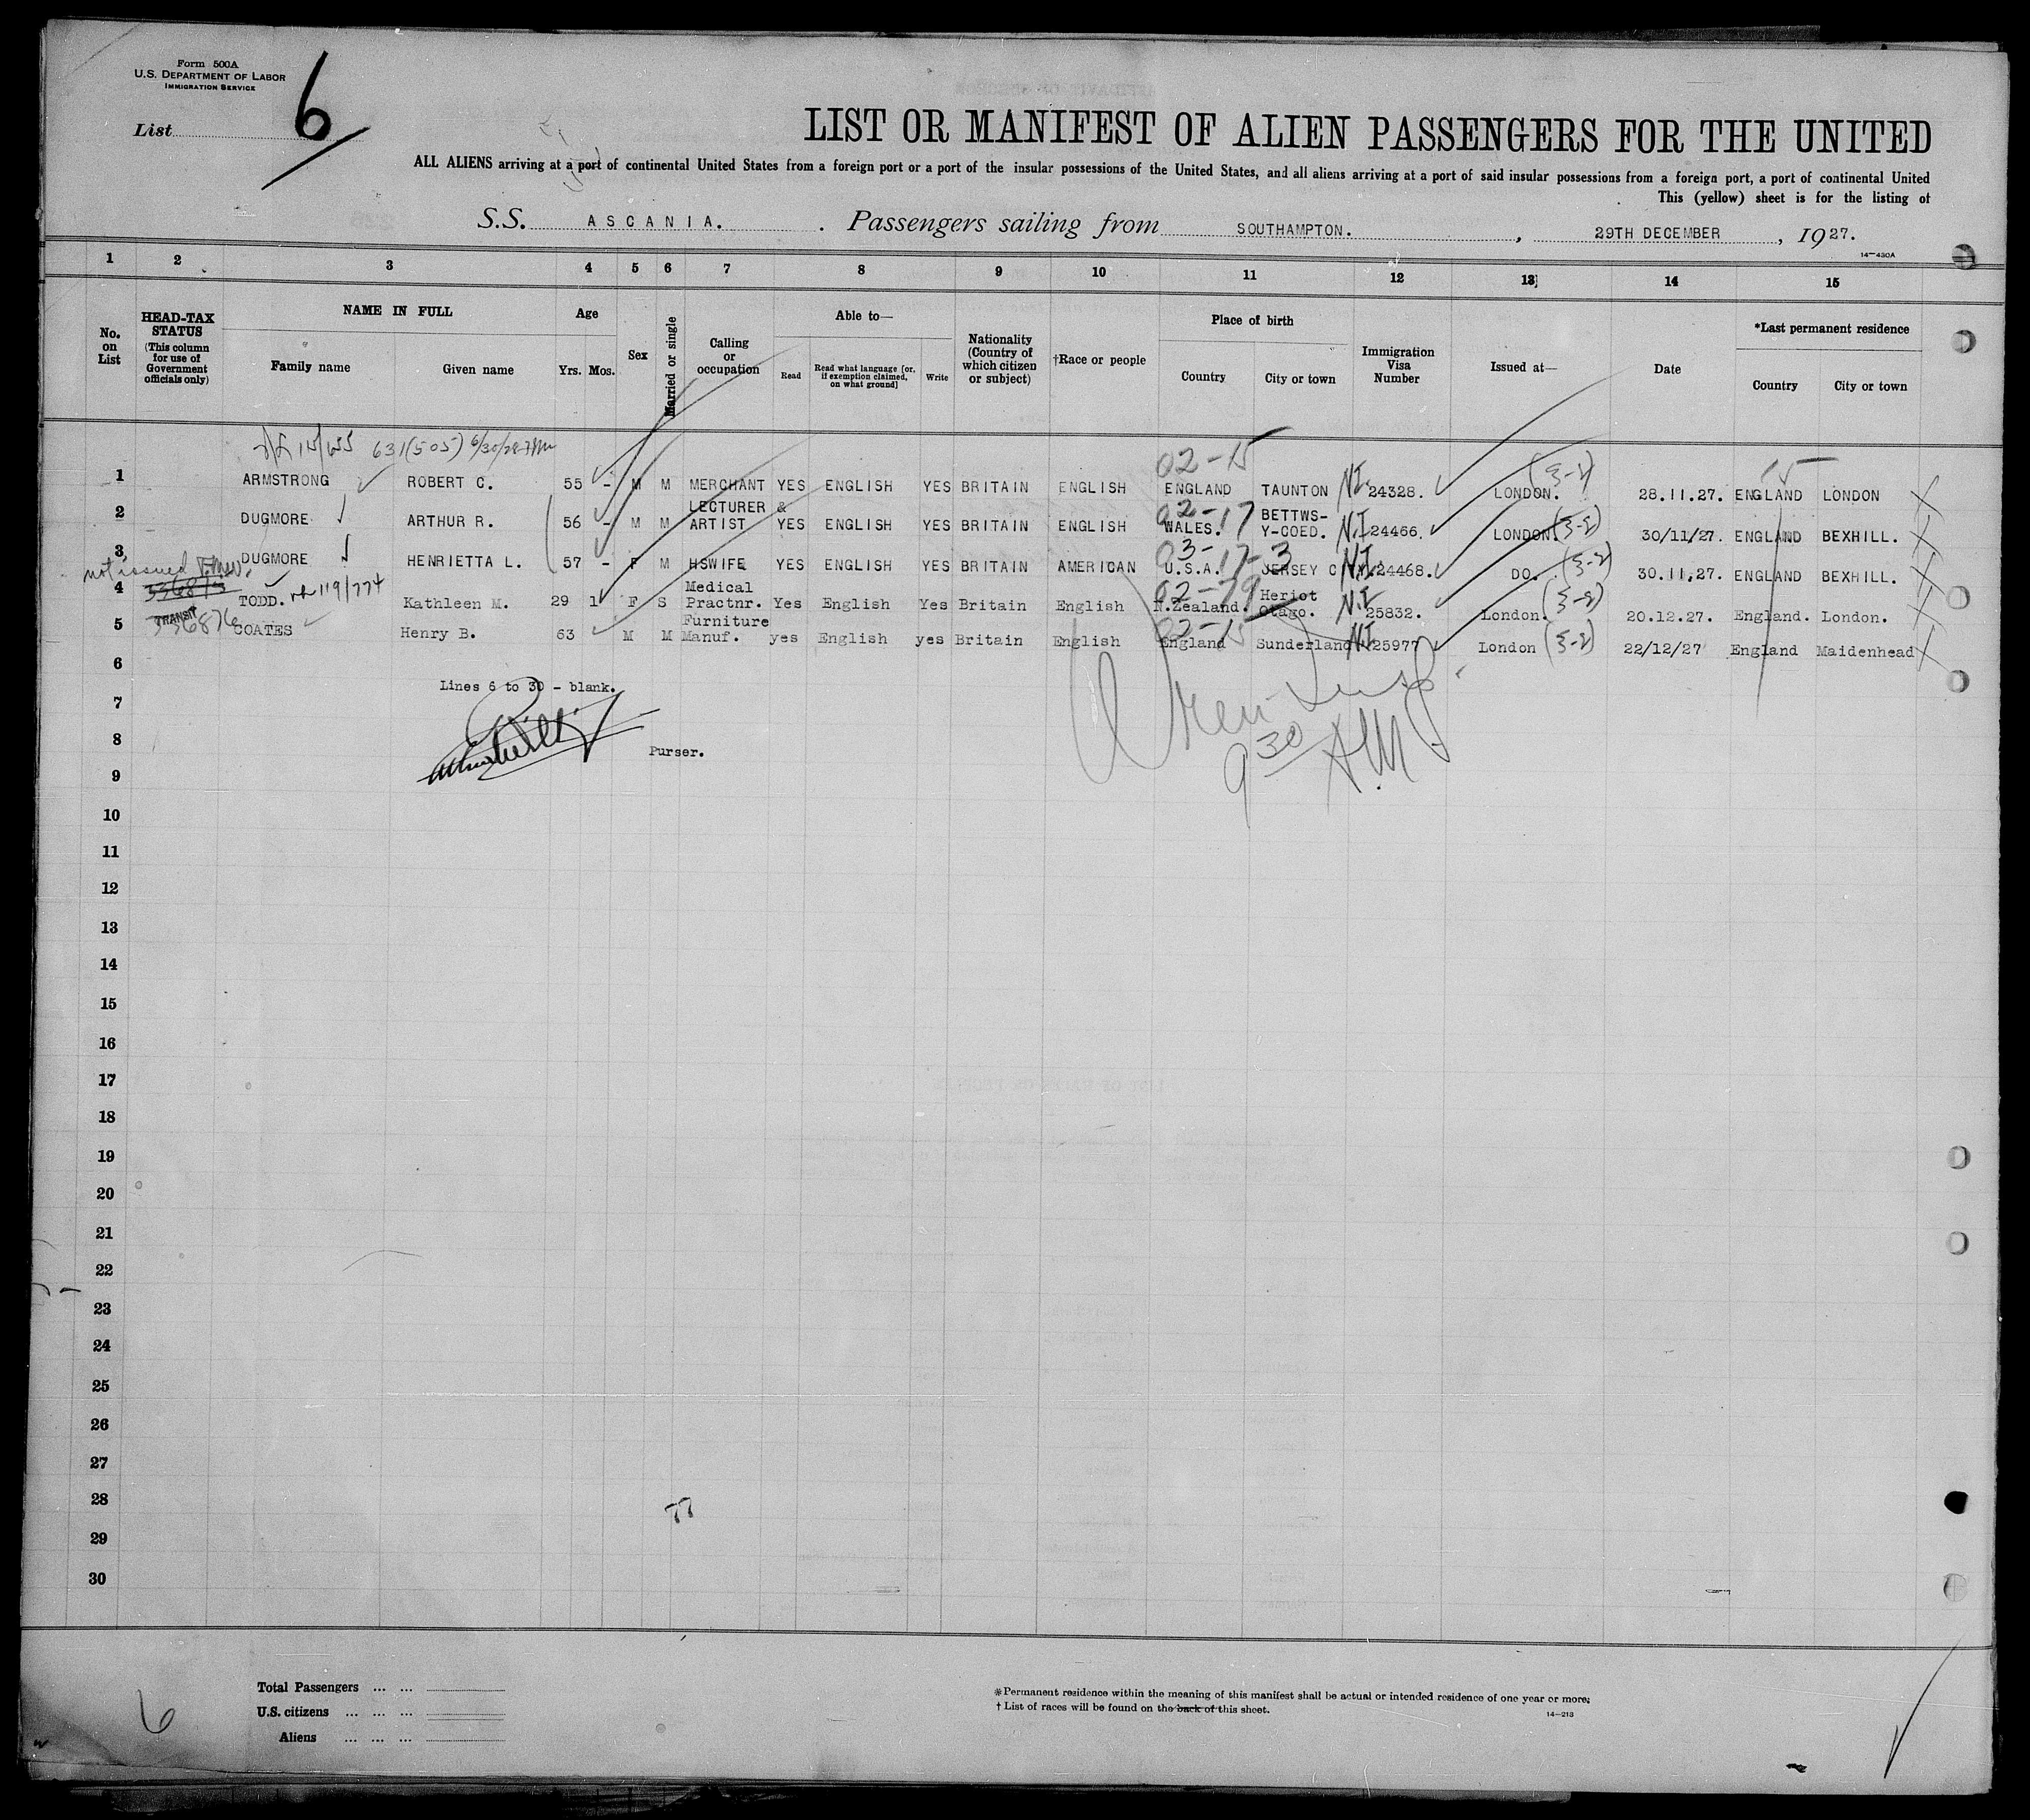 Form 500A
U.S. DEPARTMENT OF LABOR
IMMIGRATION SERVICE
List 6
LIST OR MANIFEST OF ALIEN PASSENGERS FOR THE UNITED
ALL ALIENS arriving at a port of continental United States from a foreign port or a port of the insular possessions of the United States, and all aliens arriving at a port of said insular possessions from a foreign port, a port of continental United
This (yellow) sheet is for the listing of
S.S. ASCANIA. Passengers sailing from SOUTHAMPTON. , 29TH DECEMBER , 1927.
14-430A
1 2 3 4 5 6 7 8 9 10 11 12 13 14 15
No. on List
HEAD-TAX STATUS (This column for use of Government officials only)
NAME IN FULL
Family name
Given name
Age
Yrs. Mos.
Sex
Married or single
Calling or occupation
Able to—
Read
Read what language [or, if exemption claimed, on what ground]
Write
Nationality (Country of which citizen or subject)
†Race or people
Place of birth
Country
City or town
Immigration Visa Number
Issued at—
Date
*Last permanent residence
Country
City or town
631(505) 6/30/28
02-15
15
1 ARMSTRONG ROBERT C. 55 - M M MERCHANT YES ENGLISH YES BRITAIN ENGLISH ENGLAND TAUNTON N.I. 24328. LONDON. 28.11.27. ENGLAND LONDON
02-17
2 DUGMORE ARTHUR R. 56 - M M LECTURER & ARTIST YES ENGLISH YES BRITAIN ENGLISH WALES. BETTWS-Y-COED. N.I. 24466. LONDON. 30/11/27. ENGLAND BEXHILL.
03-17-3
3 DUGMORE HENRIETTA L. 57 - F M HSWIFE YES ENGLISH YES BRITAIN AMERICAN U.S.A. JERSEY C N.I. 24468. DO. 30.11.27. ENGLAND BEXHILL.
not issued
336875
02-79
4 TODD. 119/774 Kathleen M. 29 1 F S Medical Practnr. Yes English Yes Britain English N.Zealand. Heriot Otago. N.I. 25832. London. 20.12.27. England. London.
TRANSIT
336876
02-15
5 COATES Henry B. 63 M M Furniture Manuf. yes English yes Britain English England Sunderland N.I. 25977 London 22/12/27 England Maidenhead
6
Lines 6 to 30 - blank.
7
8
Purser.
930 AM
9
10
11
12
13
14
15
16
17
18
19
20
21
22
23
24
25
26
27
28
77
29
30
Total Passengers ... ...
U.S. citizens ... ... ...
Aliens ... ... ...
6
*Permanent residence within the meaning of this manifest shall be actual or intended residence of one year or more.
† List of races will be found on the back of this sheet.
14-213